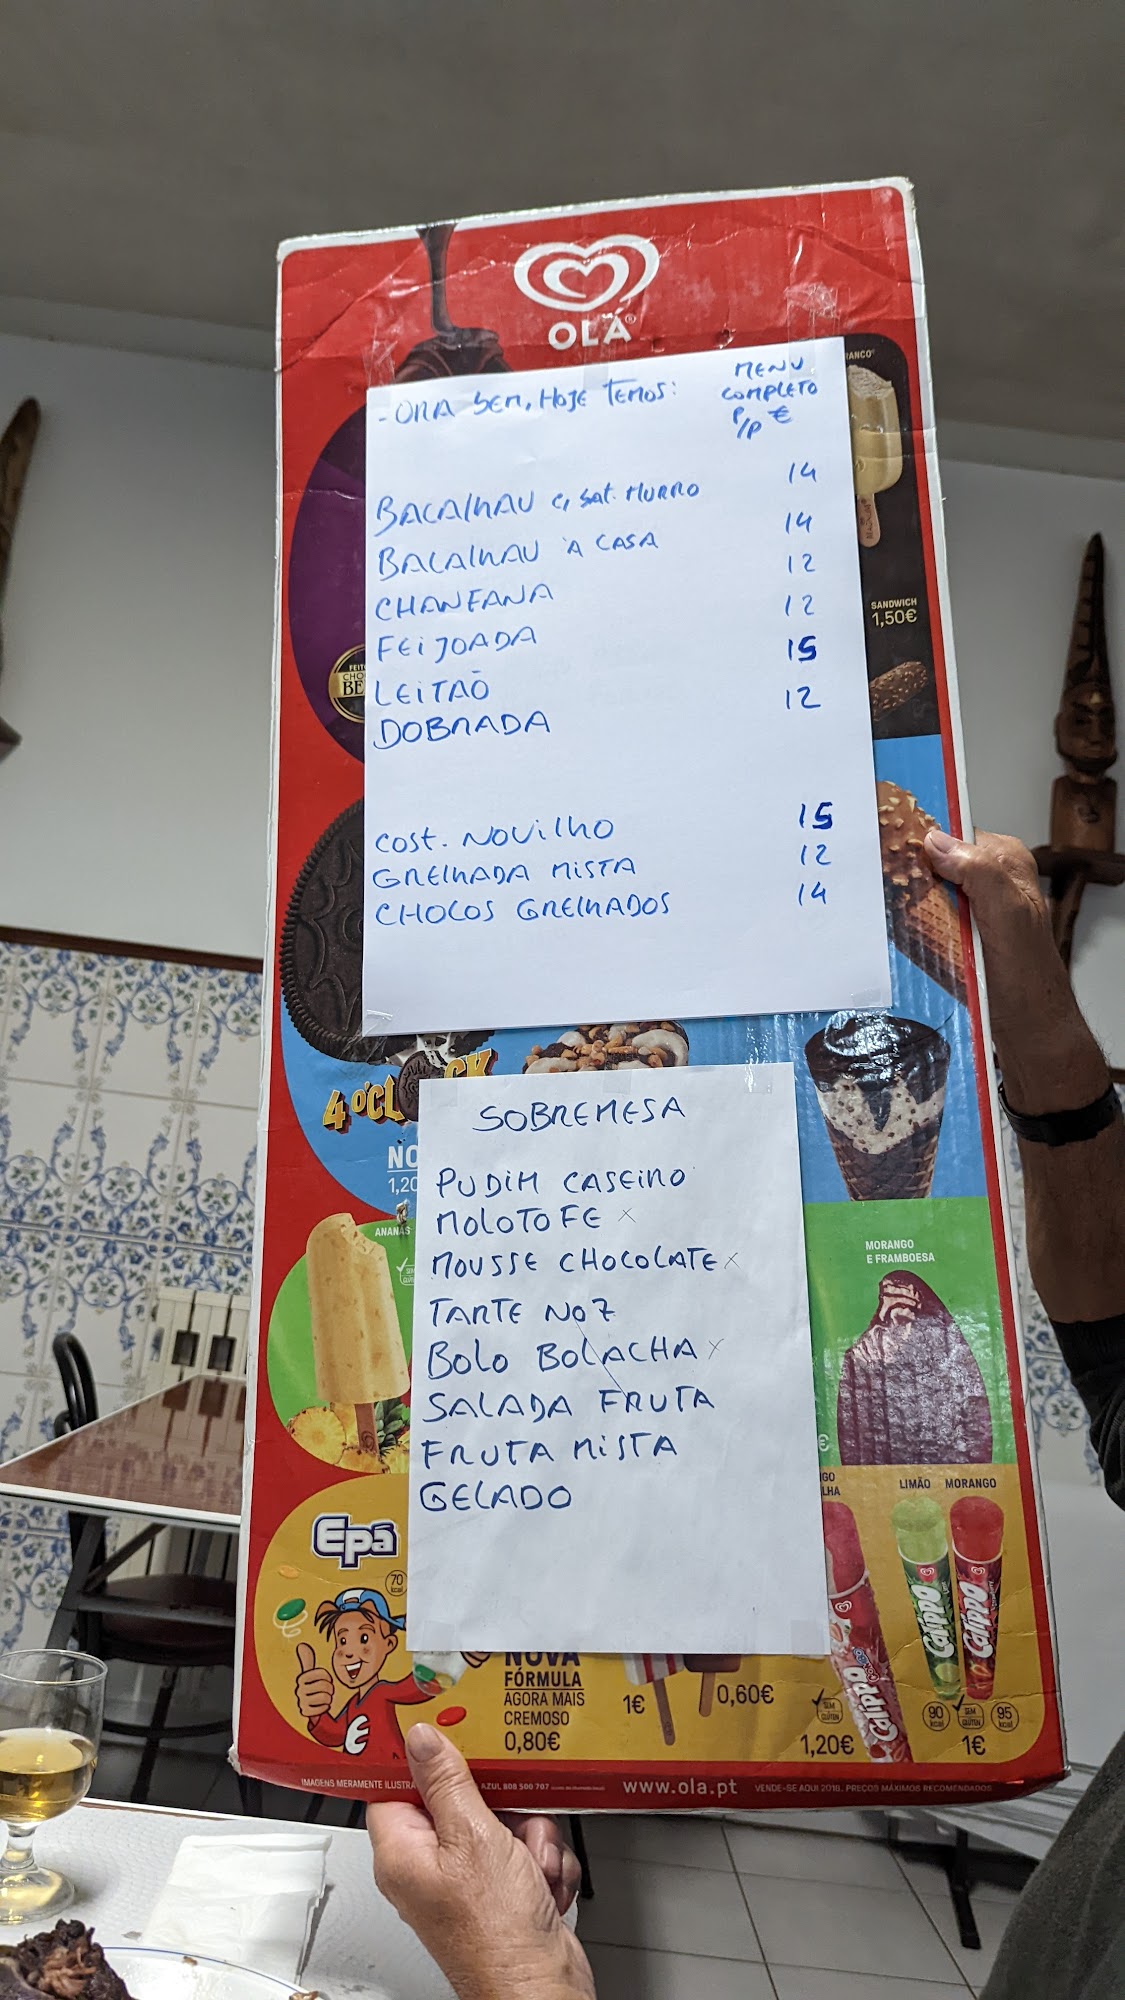 OLÁ
- ORA BEM, HOJE TEMOS:
MENU
COMPLETO
P/P €
BACALHAU C/ BAT. MURRO 14
BACALHAU À CASA 14
CHANFANA 12
FEIJOADA 12
LEITÃO 15
DOBRADA 12
COST. NOVILHO 15
GRELHADA MISTA 12
CHOCOS GRELHADOS 14
SANDWICH
1,50€
4 O'CL CK
1,20
ANANÁS
SOBREMESA
PUDIM CASEIRO
MOLOTOFE x
MOUSSE CHOCOLATE x
TARTE NOZ
BOLO BOLACHA x
SALADA FRUTA
FRUTA MISTA
GELADO
MORANGO
E FRAMBOESA
LIMÃO MORANGO
Epá
70
kcal
NOVA
FÓRMULA
AGORA MAIS
CREMOSO
0,80€
1€
0,60€
Calippo
SEM GLÚTEN
1,20€
Calippo
Calippo
90
kcal
SEM GLÚTEN
95
kcal
1€
IMAGENS MERAMENTE ILUSTRA
AZUL 808 500 707
www.ola.pt
VENDE-SE AQUI 2018. PREÇOS MÁXIMOS RECOMENDADOS